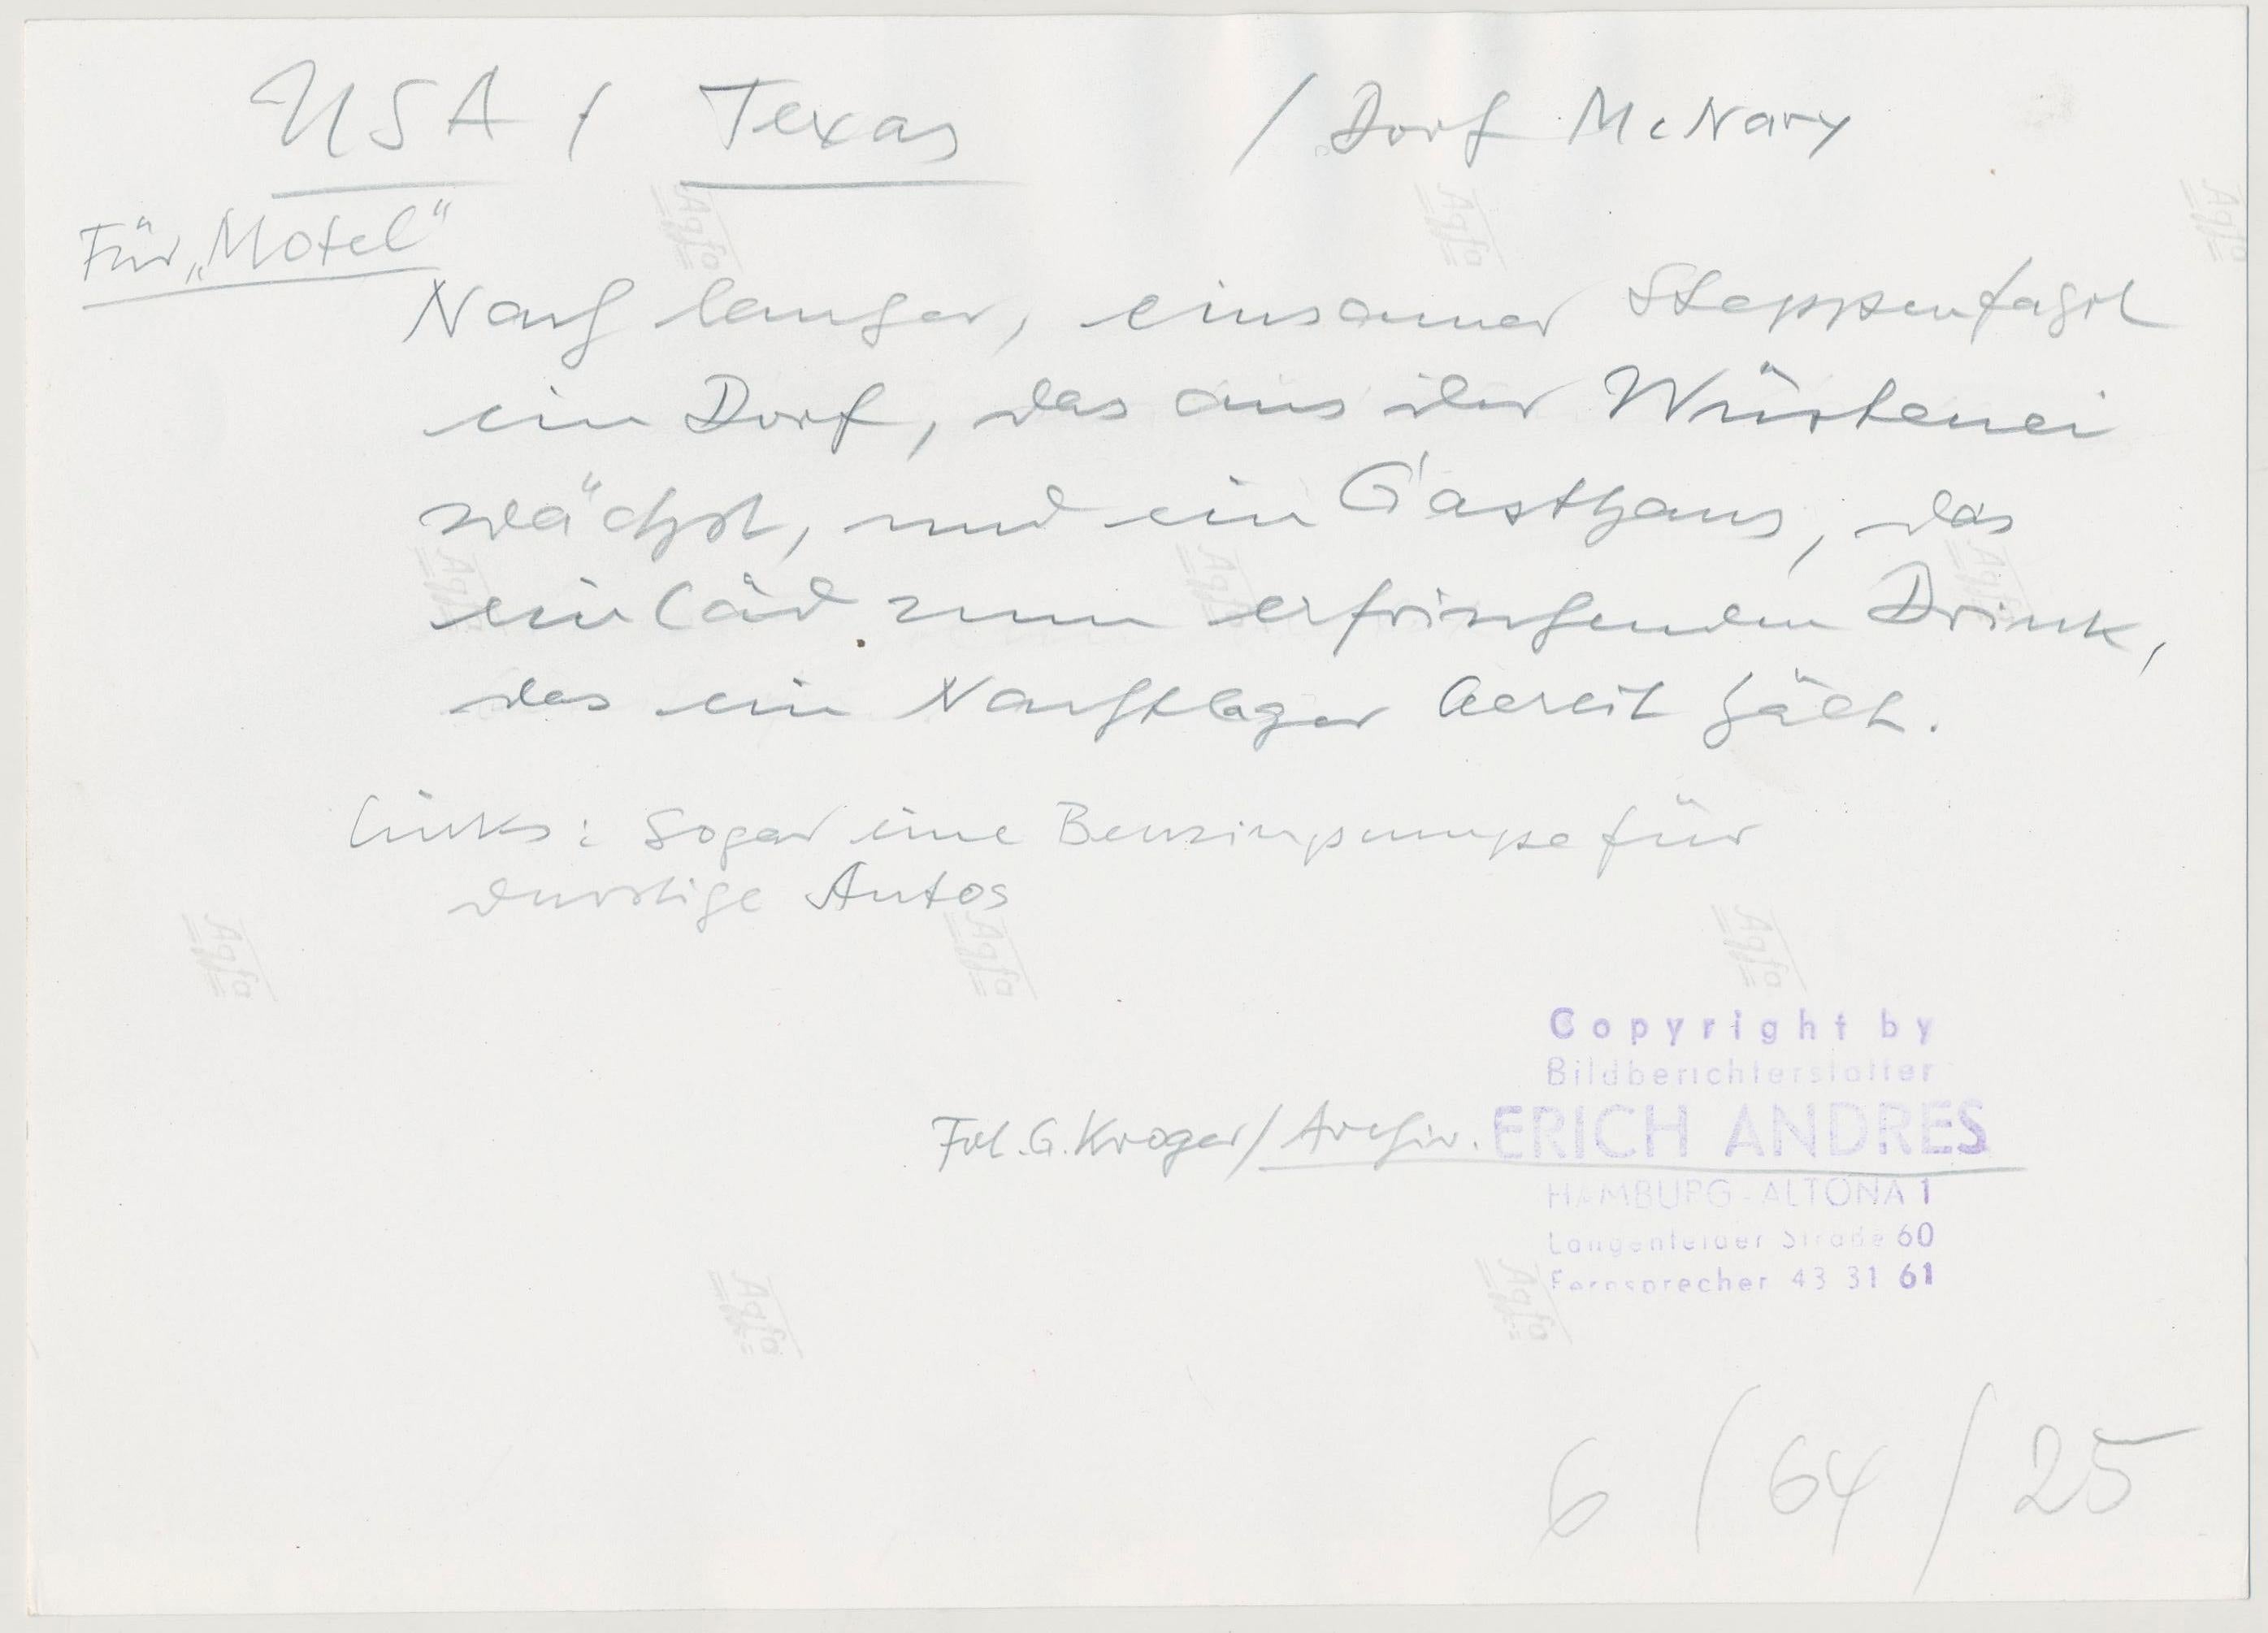 USA / Texas / Dorf McNary
Für „Motel“
Nach langer, einsamer Steppenfahrt
ein Dorf, das aus der Wüstenei
wächst, und ein Gasthaus, das
einläd zum erfrischenden Drink,
das ein Nachtlager bereit hält.
Links: Sogar eine Benzinpumpe für
durstige Autos
Copyright by
Bildberichterstatter
Frl. G. Kroger / Archiv. ERICH ANDRES
HAMBURG-ALTONA 1
Langenfelder Straße 60
Fernsprecher 43 31 61
6 / 64 / 25
Agfa
Agfa
Agfa
Agfa
Agfa
Agfa
Agfa
Agfa
Agfa
Agfa
Agfa